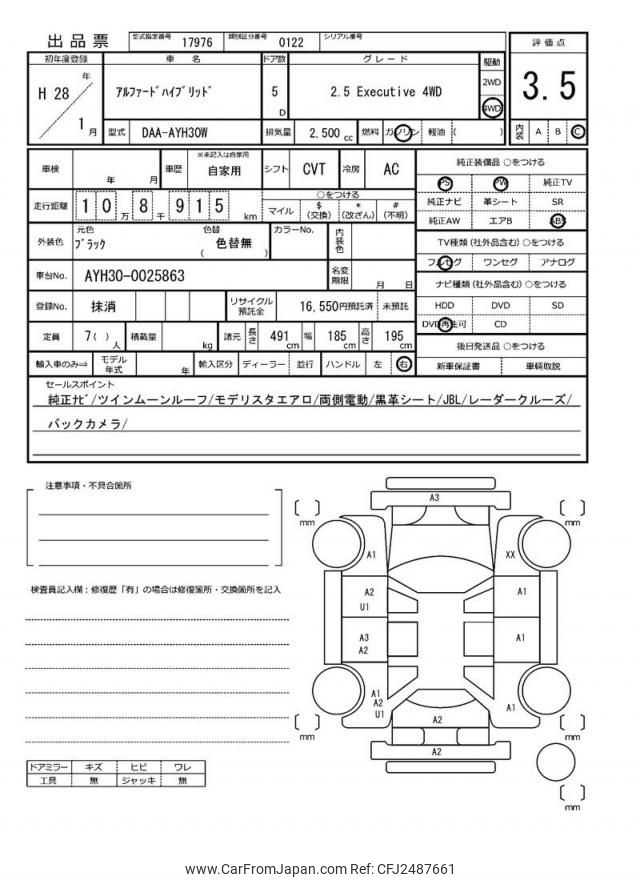 出品票 型式指定番号 17976 類別区分番号 0122 シリアル番号
初年度登録 車 名 ドア数 グレード 駆動 評価点
H 28 年 1 月 アルファードハイブリッド 5 D 2.5 Executive 4WD 2WD 4WD 3.5
型式 DAA-AYH30W 排気量 2,500 cc 燃料 ガソリン 軽油 ( ) 内装 A B C
車検 年 月 車歴 ※未記入は自家用 自家用 シフト CVT 冷房 AC
走行距離 1 0 万 8 千 9 1 5 km ○をつける
マイル $ (交換) * (改ざん) # (不明)
外装色 元色 ブラック 色替 ( 色替無 ) カラーNo. 内装色
車台No. AYH30-0025863 名変期限 月 日
登録No. 抹消 リサイクル預託金 16,550円預託済 未預託
定員 7( ) 人 積載量 kg 諸元 長さ 491 cm 幅 185 cm 高さ 195 cm
輸入車のみ⇒ モデル年式 年 輸入区分 ディーラー 並行 ハンドル 左 右
純正装備品 ○をつける
PS PW 純正TV
純正ナビ 革シート SR
純正AW エアB ABS
TV種類 (社外品含む) ○をつける
フルセグ ワンセグ アナログ
ナビ種類 (社外品含む) ○をつける
HDD DVD SD
DVD再生可 CD
後日発送品 ○をつける
新車保証書 車輌取説
セールスポイント
純正ナビ/ツインムーンルーフ/モデリスタエアロ/両側電動/黒革シート/JBL/レーダークルーズ/
バックカメラ/
注意事項・不具合箇所
検査員記入欄：修復歴「有」の場合は修復箇所・交換箇所を記入
ドアミラー キズ ヒビ ワレ
工具 無 ジャッキ 無
A3
[ ] mm
[ ] mm
A1 XX
A2 U1 A1
A3 A2 A1
A1 A2 U1 A1
A2
[ ] mm
[ ] mm
A2
[ ] mm
www.CarFromJapan.com Ref: CFJ2487661